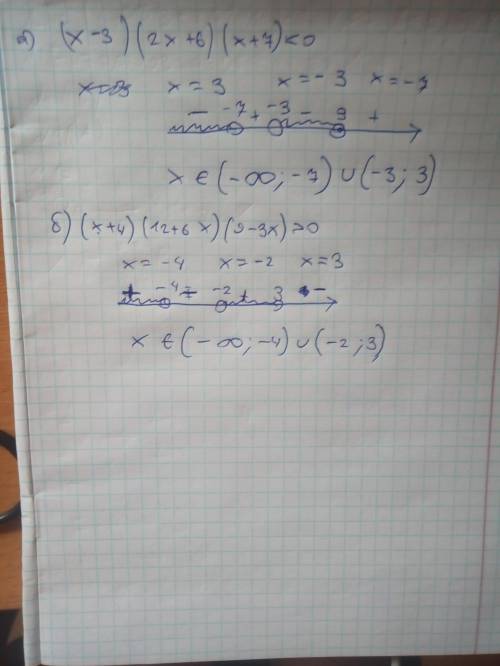 а) (x-3)(2x+6)(x+7)<0
x=3 x=-3 x=-7
- -7 + -3 - 3 +
x ∈ (-∞; -7) ∪ (-3; 3)
б) (x+4)(12+6x)(9-3x)>0
x=-4 x=-2 x=3
+ -4 - -2 + 3 -
x ∈ (-∞; -4) ∪ (-2; 3)